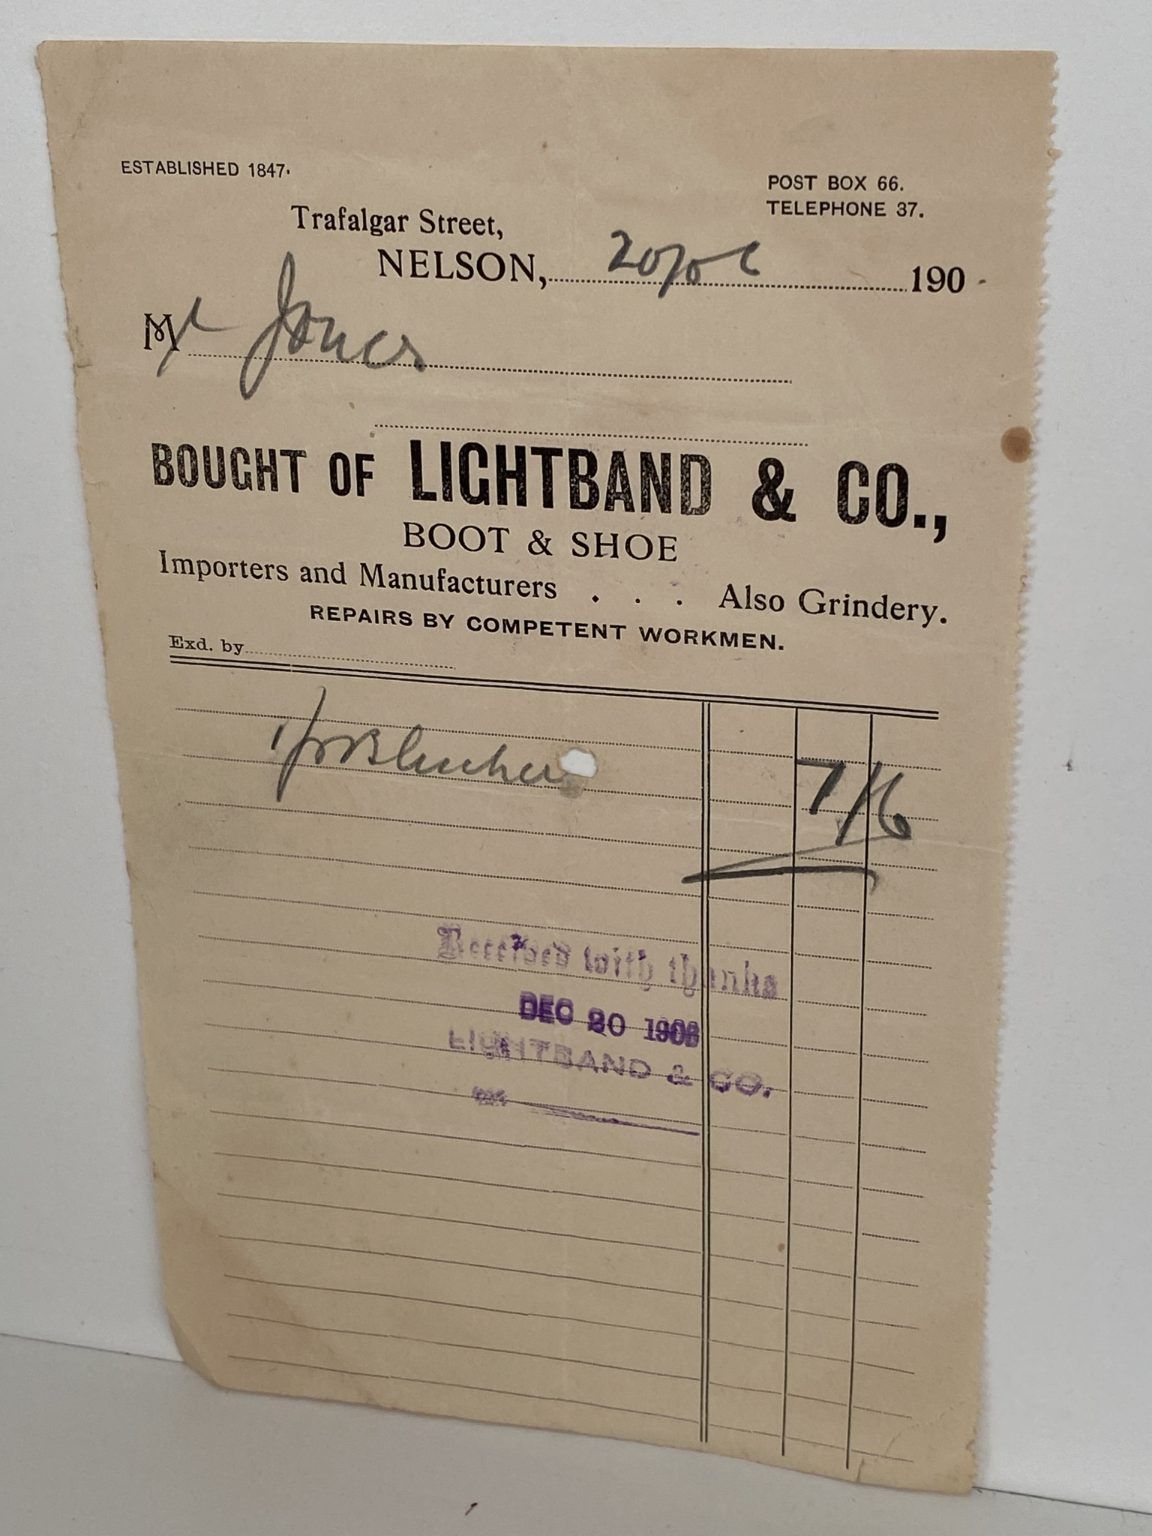 ESTABLISHED 1847.
POST BOX 66.
TELEPHONE 37.
Trafalgar Street,
NELSON, 190
Mr Jones
BOUGHT OF LIGHTBAND & CO.,
BOOT & SHOE
Importers and Manufacturers . . . Also Grindery.
REPAIRS BY COMPETENT WORKMEN.
Exd. by
1 pr Bluchers 7/6
Received with thanks
DEC 20 1906
LIGHTBAND & CO.